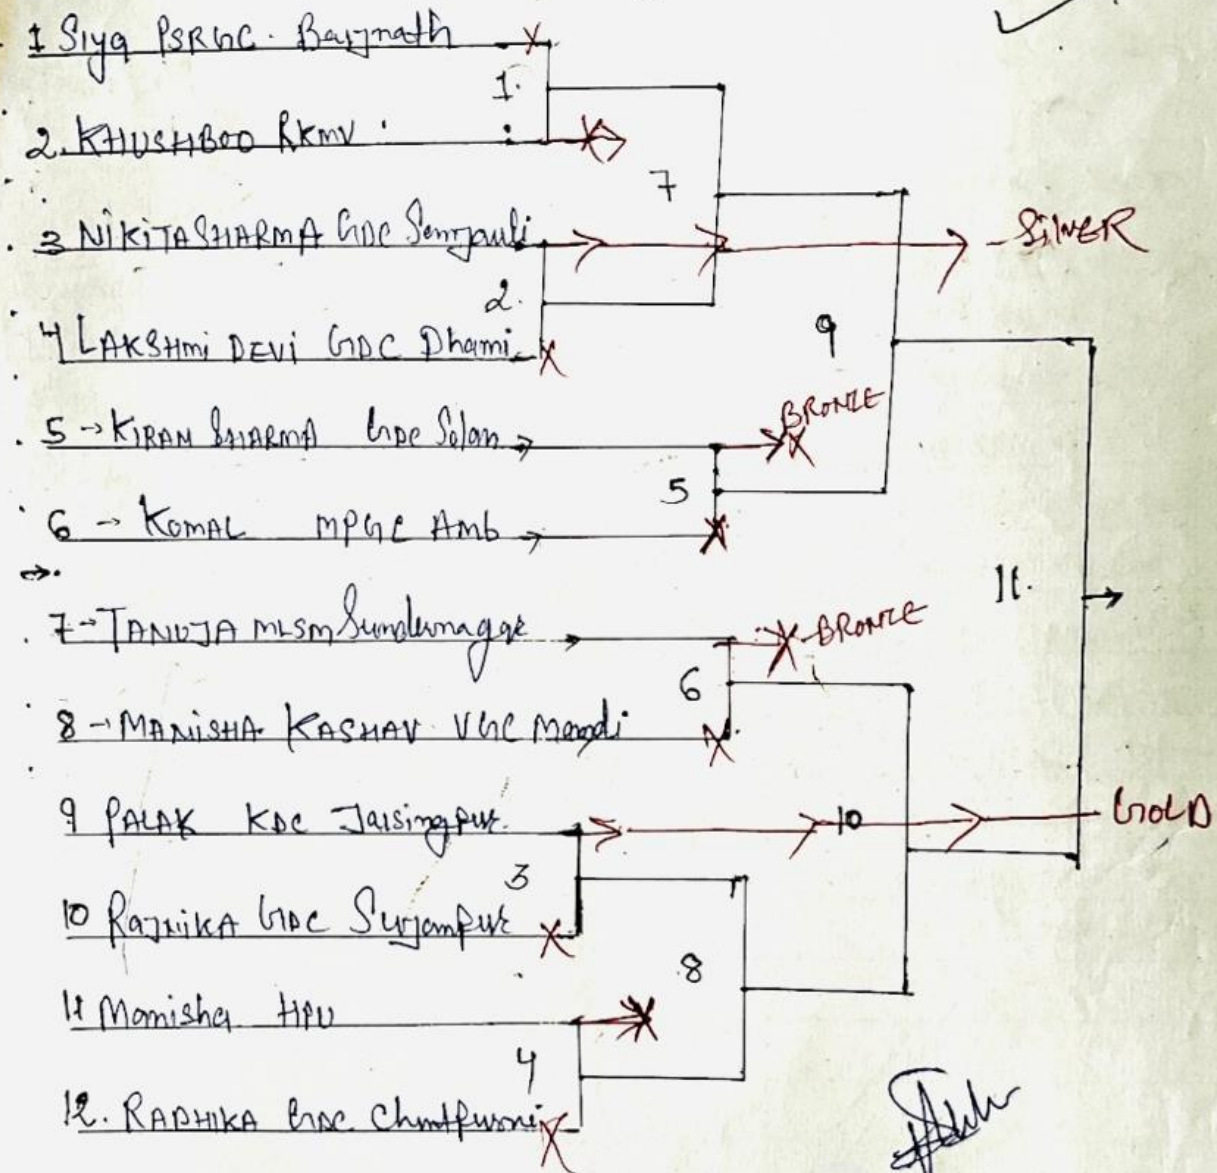 1 Siya PSRGC. Baijnath
1.
2. KHUSHBOO RKMV
7
3 NIKITA SHARMA GDC Sanjauli
SILVER
2.
4 LAKSHMI DEVI GDC Dhami
9
BRONZE
5 → KIRAN SHARMA GDC Solan
5
6 → KOMAL MPGC Amb
11.
7 - TANUJA MLSM Sundernagar
BRONZE
6
8 - MANISHA KASHAV VGC Mandi
9 PALAK KDC Jaisingpur
10
GOLD
3
10 RAJNIKA GDC Sujanpur
8
11 Manisha HPU
4
12. RADHIKA GDC Chintpurni